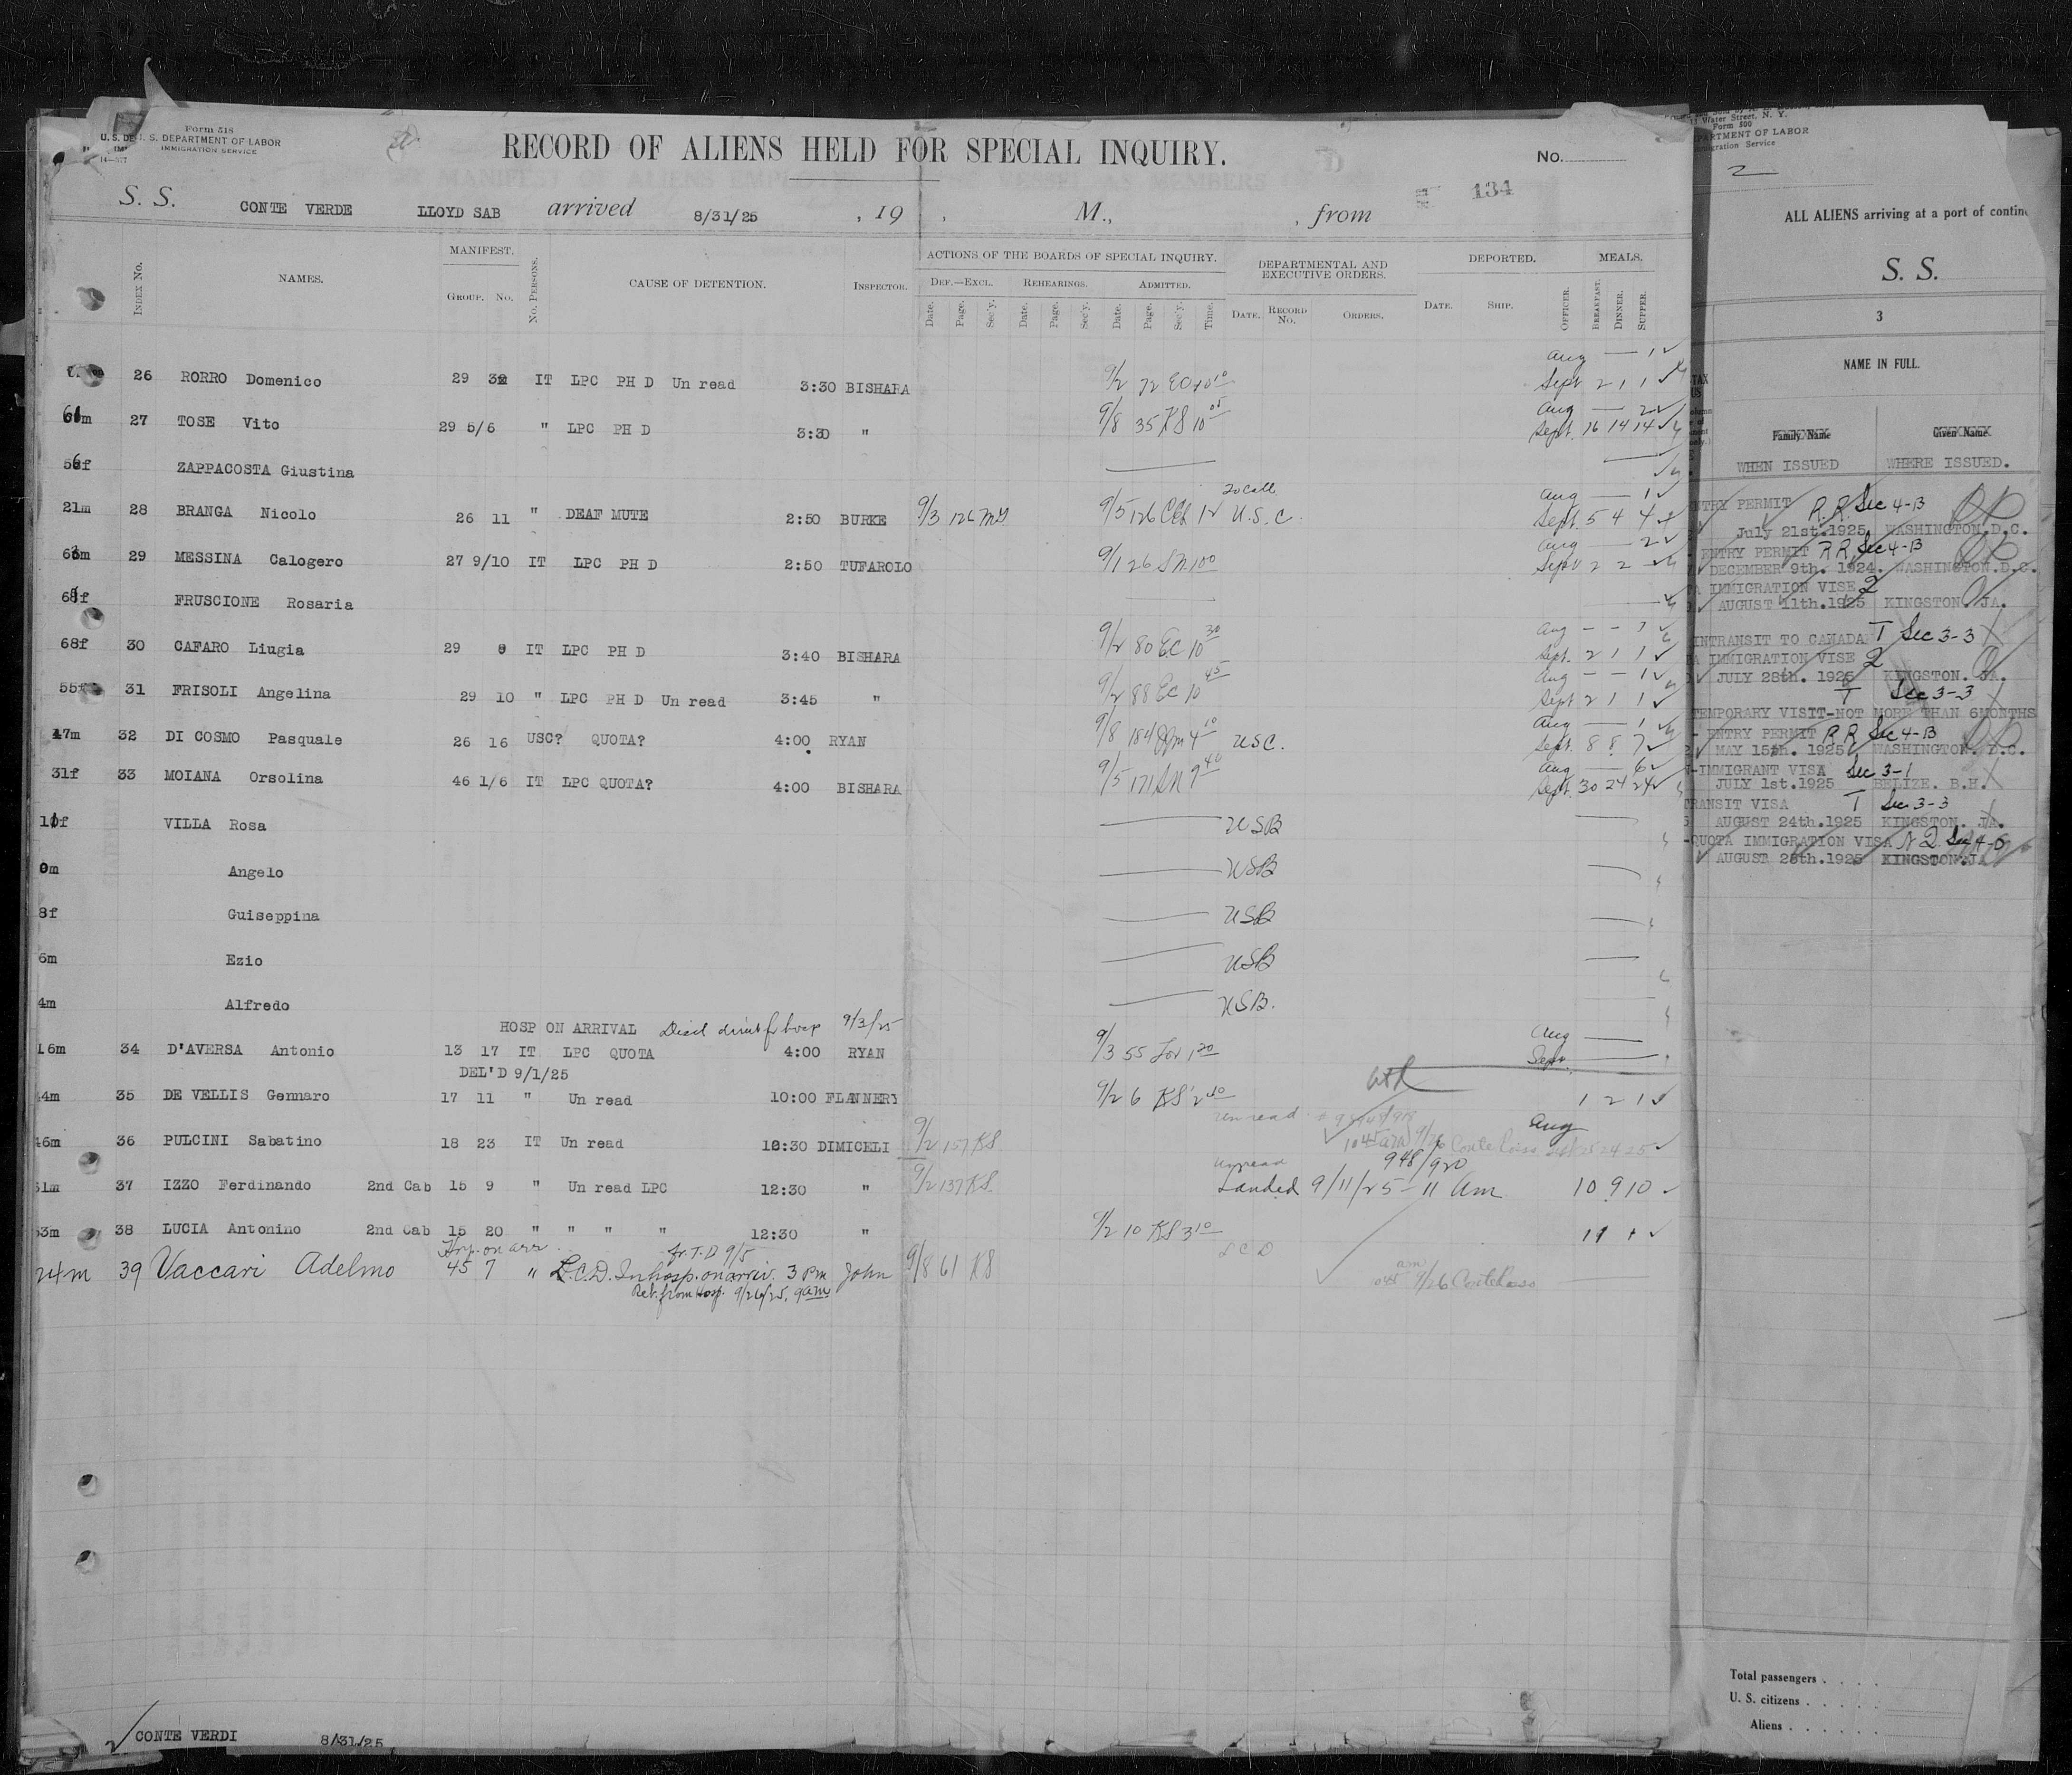 Form 318
U. S. DEPARTMENT OF LABOR
IMMIGRATION SERVICE
14—377
RECORD OF ALIENS HELD FOR SPECIAL INQUIRY.
No.
134
S. S. CONTE VERDE LLOYD SAB arrived 8/31/25 , 19 , M., , from
INDEX No. NAMES. MANIFEST. GROUP. NO. No. PERSONS. CAUSE OF DETENTION. INSPECTOR. ACTIONS OF THE BOARDS OF SPECIAL INQUIRY. DEPARTMENTAL AND EXECUTIVE ORDERS. DEPORTED. MEALS.
DEF.—EXCL. REHEARINGS. ADMITTED.
Date. Page. Sec'y. Date. Page. Sec'y. Date. Page. Sec'y. Time. DATE. RECORD No. ORDERS. DATE. SHIP. OFFICER. BREAKFAST. DINNER. SUPPER.
Aug — 1 ✓
26 RORRO Domenico 29 32 IT LPC PH D Un read 3:30 BISHARA 9/2 72 Sept 2 1 1 ✓
Aug — 2 ✓
27 TOSE Vito 29 5/6 " LPC PH D 3:30 " 9/8 35 KS 10 05 Sept. 16 14 14 ✓
ZAPPACOSTA Giustina
Aug — 1 ✓
21m 28 BRANGA Nicolo 26 11 " DEAF MUTE 2:50 BURKE 9/3 126 9/5 126 12 U.S.C. Sept. 5 4 4
Aug — 2 ✓
29 MESSINA Calogero 27 9/10 IT LPC PH D 2:50 TUFAROLO 9/1 26 Sn 1 00 Sept 2 2 —
FRUSCIONE Rosaria
Aug — — 1 ✓
68f 30 CAFARO Liugia 29 IT LPC PH D 3:40 BISHARA 9/2 80 EC 10 30 Sept. 2 1 1 ✓
Aug — — 1 ✓
31 FRISOLI Angelina 29 10 " LPC PH D Un read 3:45 " 9/2 88 EC 10 45 Sept 2 1 1 ✓
Aug — 1
47m 32 DI COSMO Pasquale 26 16 USC? QUOTA? 4:00 RYAN 9/8 184 4 10 USC. Sept. 8 8 7 ✓
Aug — 6 ✓
31f 33 MOIANA Orsolina 46 1/6 IT LPC QUOTA? 4:00 BISHARA 9/5 171 SN 9 40 Sept. 30 24 24 ✓
VILLA Rosa USB
Angelo USB
8f Guiseppina USB
6m Ezio USB
4m Alfredo USB.
HOSP ON ARRIVAL 9/3/25 Aug —
16m 34 D'AVERSA Antonio 13 17 IT LPC QUOTA 4:00 RYAN 9/3 55 1 20 Sept. —
DEL'D 9/1/25
35 DE VELLIS Gennaro 17 11 " Un read 10:00 FLANNERY 9/2 6 KS 2 40 1 2 1 ✓
Un read Aug
46m 36 PULCINI Sabatino 18 23 IT Un read 12:30 DIMICELI 9/2 157 KS 10 45 am 9/26 24 25 ✓
Unread 948/920
37 IZZO Ferdinando 2nd Cab 15 9 " Un read LPC 12:30 " 9/2 137 KS Landed 9/11/25 — 11 am 10 9 10 ✓
38 LUCIA Antonino 2nd Cab 15 20 " " " " 12:30 " 9/2 10 KS 3 10
Hosp. on arr. fr. T. D 9/5 LCD
24m 39 Vaccari Adelmo 45 7 " L.C.D. In hosp. on arriv. 3 pm John 9/8 61 KS 10 45 am 9/26
Ret. from Hosp. 9/26/25, 9am
✓ CONTE VERDI 8/31/25
Water Street, N. Y.
Form 500
DEPARTMENT OF LABOR
Immigration Service
2
ALL ALIENS arriving at a port of contin
S. S.
3
NAME IN FULL.
Family Name Given Name
WHEN ISSUED WHERE ISSUED.
ENTRY PERMIT R.R. Sec 4-B
July 21st.1925 WASHINGTON,D.C.
ENTRY PERMIT R R Sec 4-B
DECEMBER 9th. 1924. WASHINGTON.D.C.
IMMIGRATION VISE 2
AUGUST 11th.1925 KINGSTON JA.
INTRANSIT TO CANADA T Sec 3-3
IMMIGRATION VISE 2
JULY 28th. 1925 KINGSTON. JA.
T Sec 3-3
TEMPORARY VISIT-NOT MORE THAN 6MONTHS
ENTRY PERMIT R R Sec 4-B
MAY 15th. 1925 WASHINGTON. D.C.
-IMMIGRANT VISA Sec 3-1
JULY 1st.1925 BELIZE. B.H.
TRANSIT VISA T Sec 3-3
AUGUST 24th.1925 KINGSTON. JA.
-QUOTA IMMIGRATION VISA N Q Sec 4-D
AUGUST 28th.1925 KINGSTON.JA
Total passengers . . . .
U. S. citizens . . . . .
Aliens . . . . . .